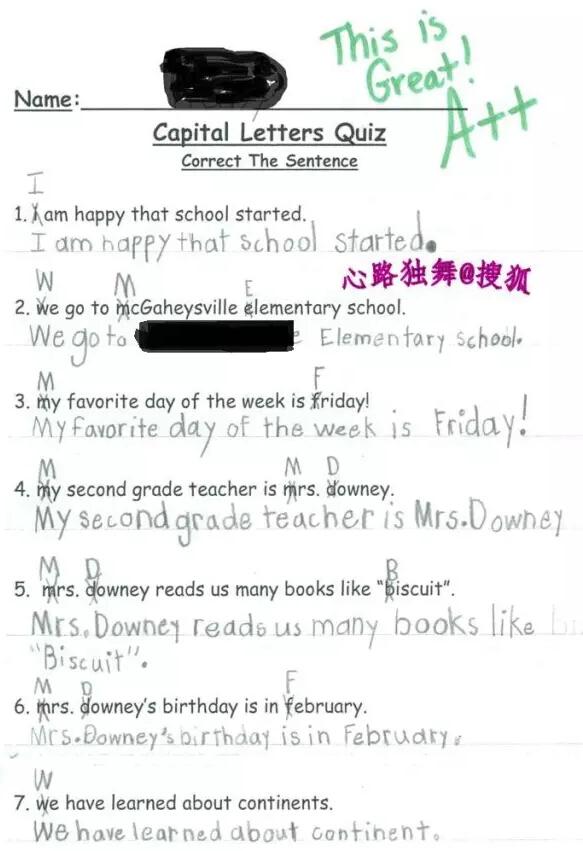 This is
Great!
A++
Name:
Capital Letters Quiz
Correct The Sentence
I
1. i am happy that school started.
I am happy that school started.
心路独舞@搜狐
W M E
2. we go to mcGaheysville elementary school.
We go to e Elementary school.
M F
3. my favorite day of the week is friday!
My favorite day of the week is Friday!
M M D
4. my second grade teacher is mrs. downey.
My second grade teacher is Mrs. Downey
M D B
5. mrs. downey reads us many books like "biscuit".
Mrs. Downey reads us many books like
"Biscuit".
M D F
6. mrs. downey's birthday is in february.
Mrs. Downey's birthday is in February.
W
7. we have learned about continents.
We have learned about continent.